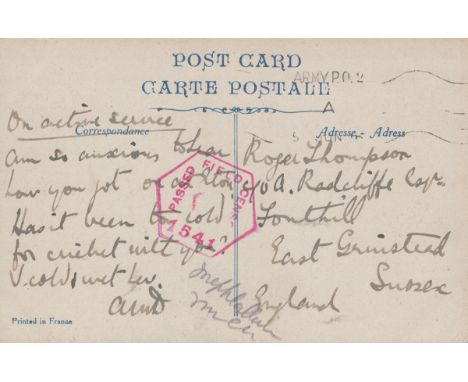 POST CARD
CARTE POSTALE
ARMY P.O. 2
A
On active service
Correspondance
Adresse - Adress
Am so anxious to hear
how you got on at
Has it been too cold
for cricket with you?
V cold & wet here.
Aunt
PASSED FIELD CENSOR
1541
Roger Thompson
c/o A. Radcliffe Esqre
Fonthill
East Grinstead
Sussex
England
Printed in France